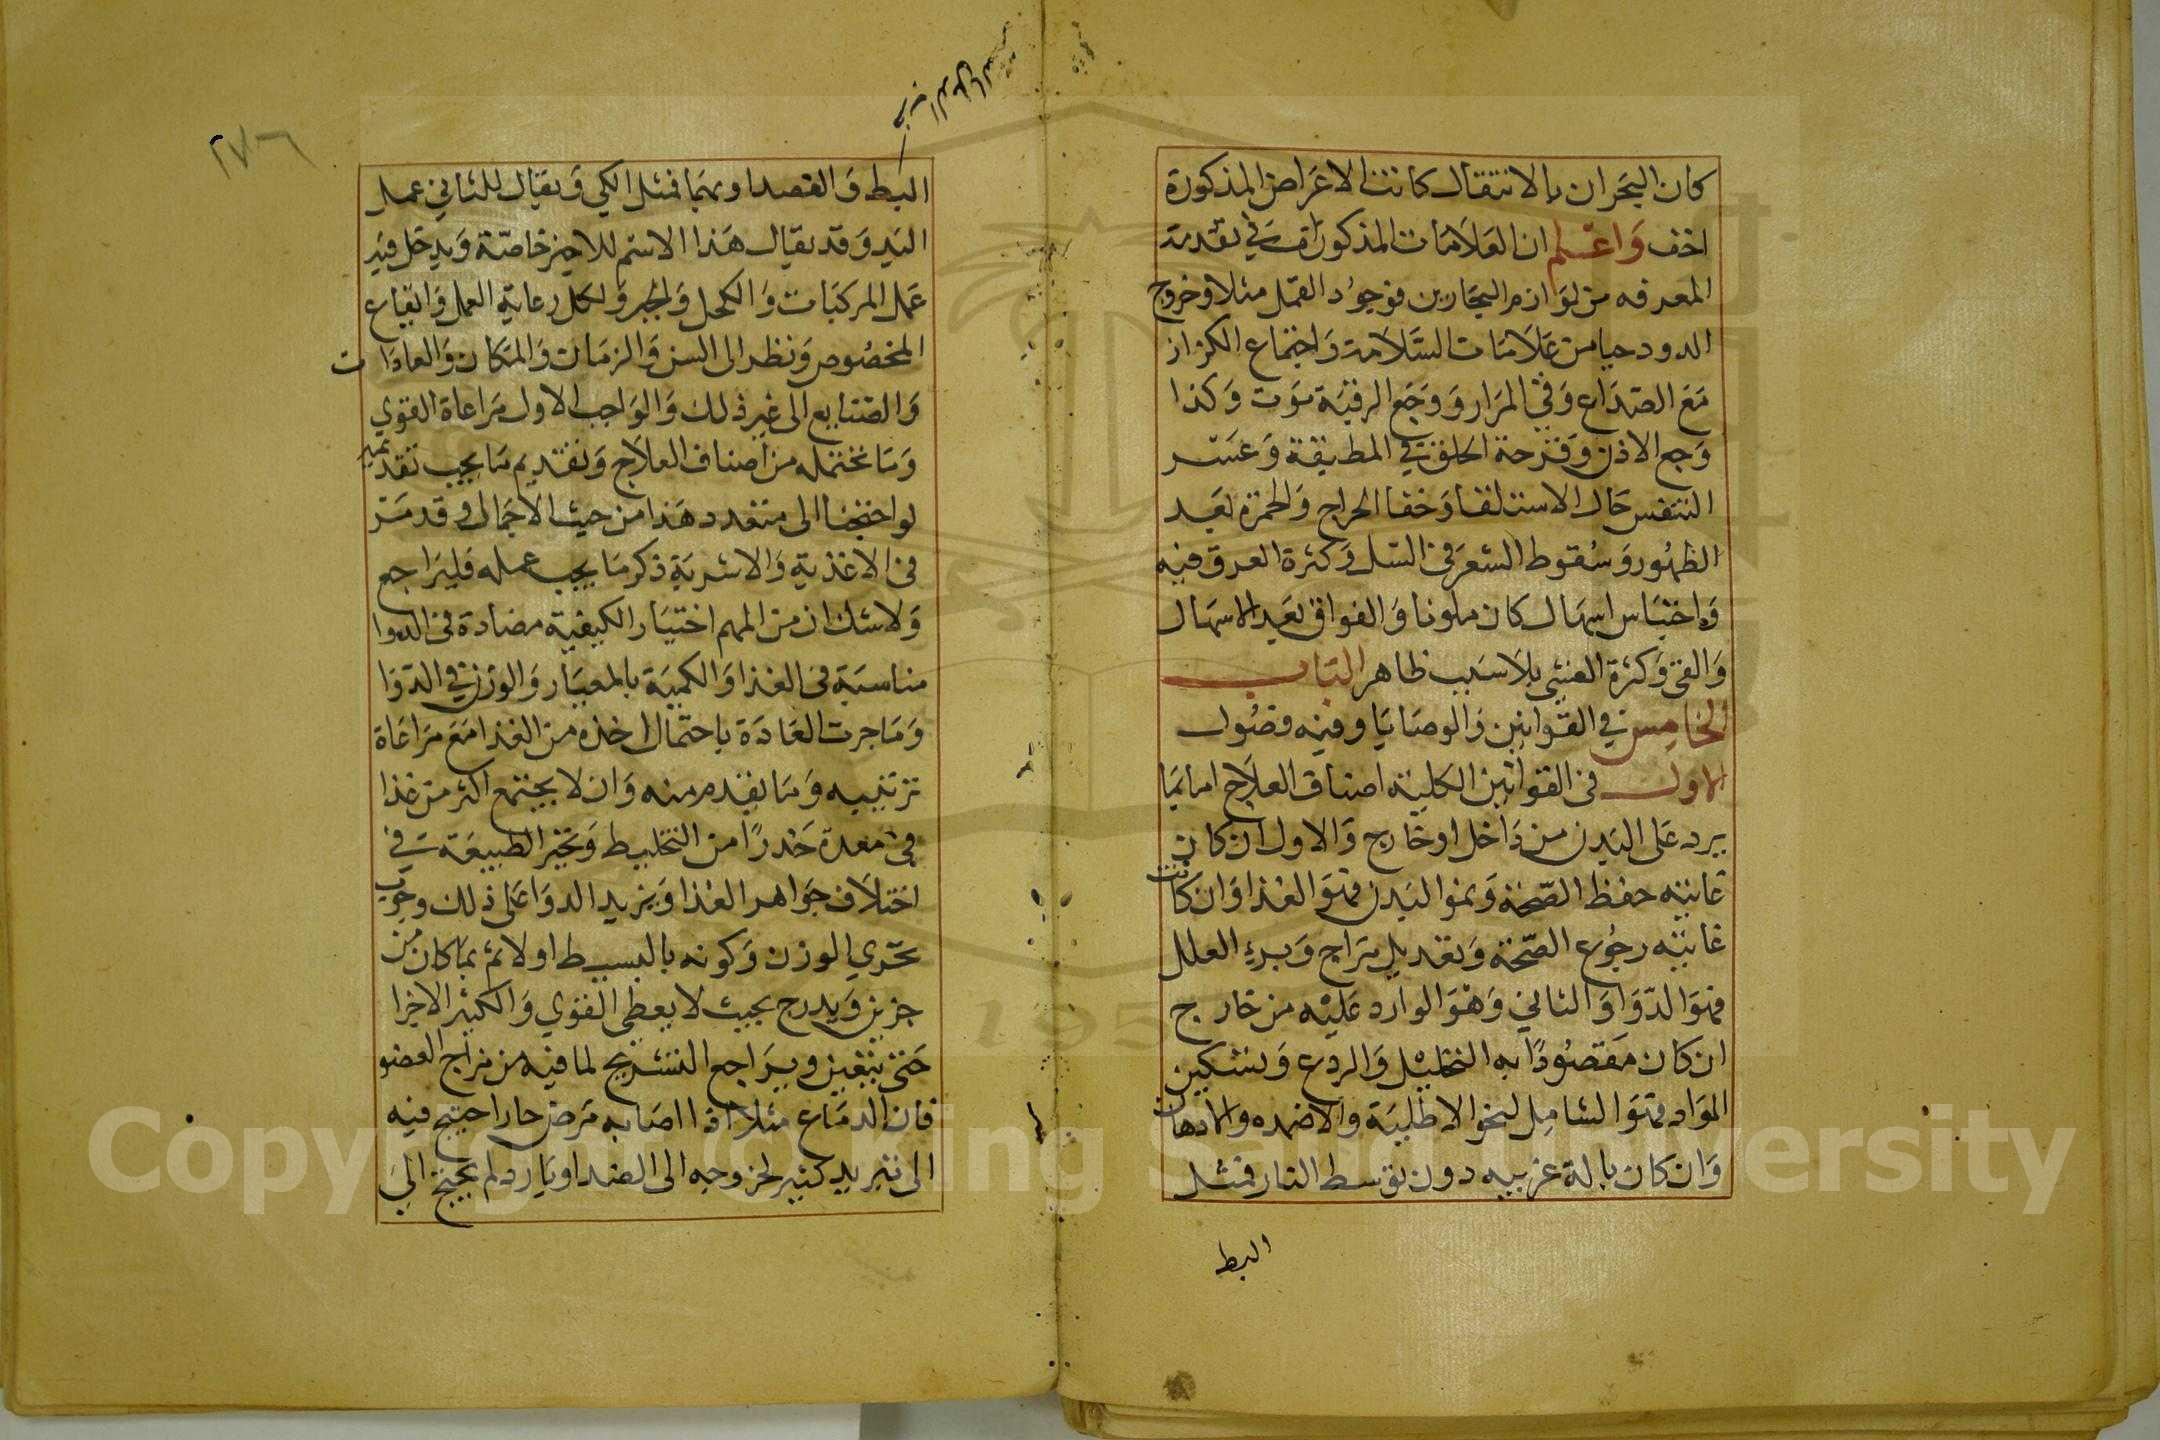 كان البحران بالانتقال كانت الاعراض المذكورة
اخف واعلم ان العلامات المذكورات في تقدمة
المعرفه من لوازم البحارين فوجود القمل مثلا وخروج
الدود حيا من علامات السلامة واجتماع الكزاز
مع الصداع وقي المرار ووجع الرقبة موت وكذا
وجع الاذن وقرحة الحلق في المطبقة وعسر
التنفس حال الاستلقا وخفا الخراج والحمرة بعد
الظهور وسقوط الشعر في السل وكثرة العرق فيه
واحتباس اسهال كان ملونا والفواق بعد الاسهال
والقي وكثرة الغشي بلا سبب ظاهر الباب
الخامس في القوانين والوصايا وفيه فصول
الاول في القوانين الكلية اصناف العلاج اما بما
يرد على البدن من داخل او خارج والاول ان كان
غايته حفظ الصحة ونمو البدن فهو الغذا وان كانت
غايته رجوع الصحة وتعديل مزاج وبرء العلل
فهو الدوا والثاني وهو الوارد عليه من خارج
ان كان مقصودا به التحليل والردع وتسكين
المواد فهو الشامل لنحو الاطلية والاضمده والادهان
وان كان بالة غريبه دون توسط النار فمثل
البط
٢٧٦
البط والفصد او بهما فمثل الكي ويقال للثاني عمل
اليد وقد يقال هذا الاسم للاخير خاصة ويدخل فيه
عمل المركبات والكحل والجبر ولكل رعاية العمل وايقاع
المخصوص ونظر الى السن والزمان والمكان والعادات
والصنايع الى غير ذلك والواجب الاول مراعاة القوي
وما تحتمله من اصناف العلاج وتقديم ما يجب تقديمه
لو احتجنا الى متعدد هذا من حيث الاجمال وقد مر
في الاغذية والاشربة ذكر ما يجب عمله فليراجع
ولا شك ان من المهم اختيار الكيفية مضادة في الدوا
مناسبة في الغذا والكمية بالمعيار والوزن في الدوا
وما جرت العادة باحتمال اخذه من الغذا مع مراعاة
ترتيبه وما يقدم منه وان لا يجتمع اكثر من غذا
في معدة حذرا من التخليط وتحير الطبيعة في
اختلاف جواهر الغذا ويزيد الدوا على ذلك وجوب
تحري الوزن وكونه بالبسيط اولا ثم بما كان من
جزين ويدرج بحيث لا يعطي القوي والكثير الاجزا
حتى يتعين ويراجع التشريح لما فيه من مزاج العضو
فان الدماغ مثلا اذا اصابه مرض حار احتيج فيه
الى تبريد كثير لخروجه الى الضد او بارد لم يحتج الى